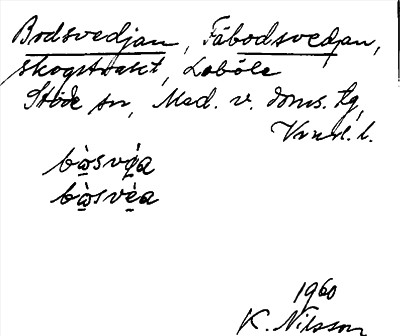 Bodsvedjan, Fäbodsvedjan,
skogstrakt, Laböle
Stöde sn, Med. v. doms. tg,
Vnrl. l.
bώ̱své̱a
bὼ̱svè̱a
1960
K. Nilsson